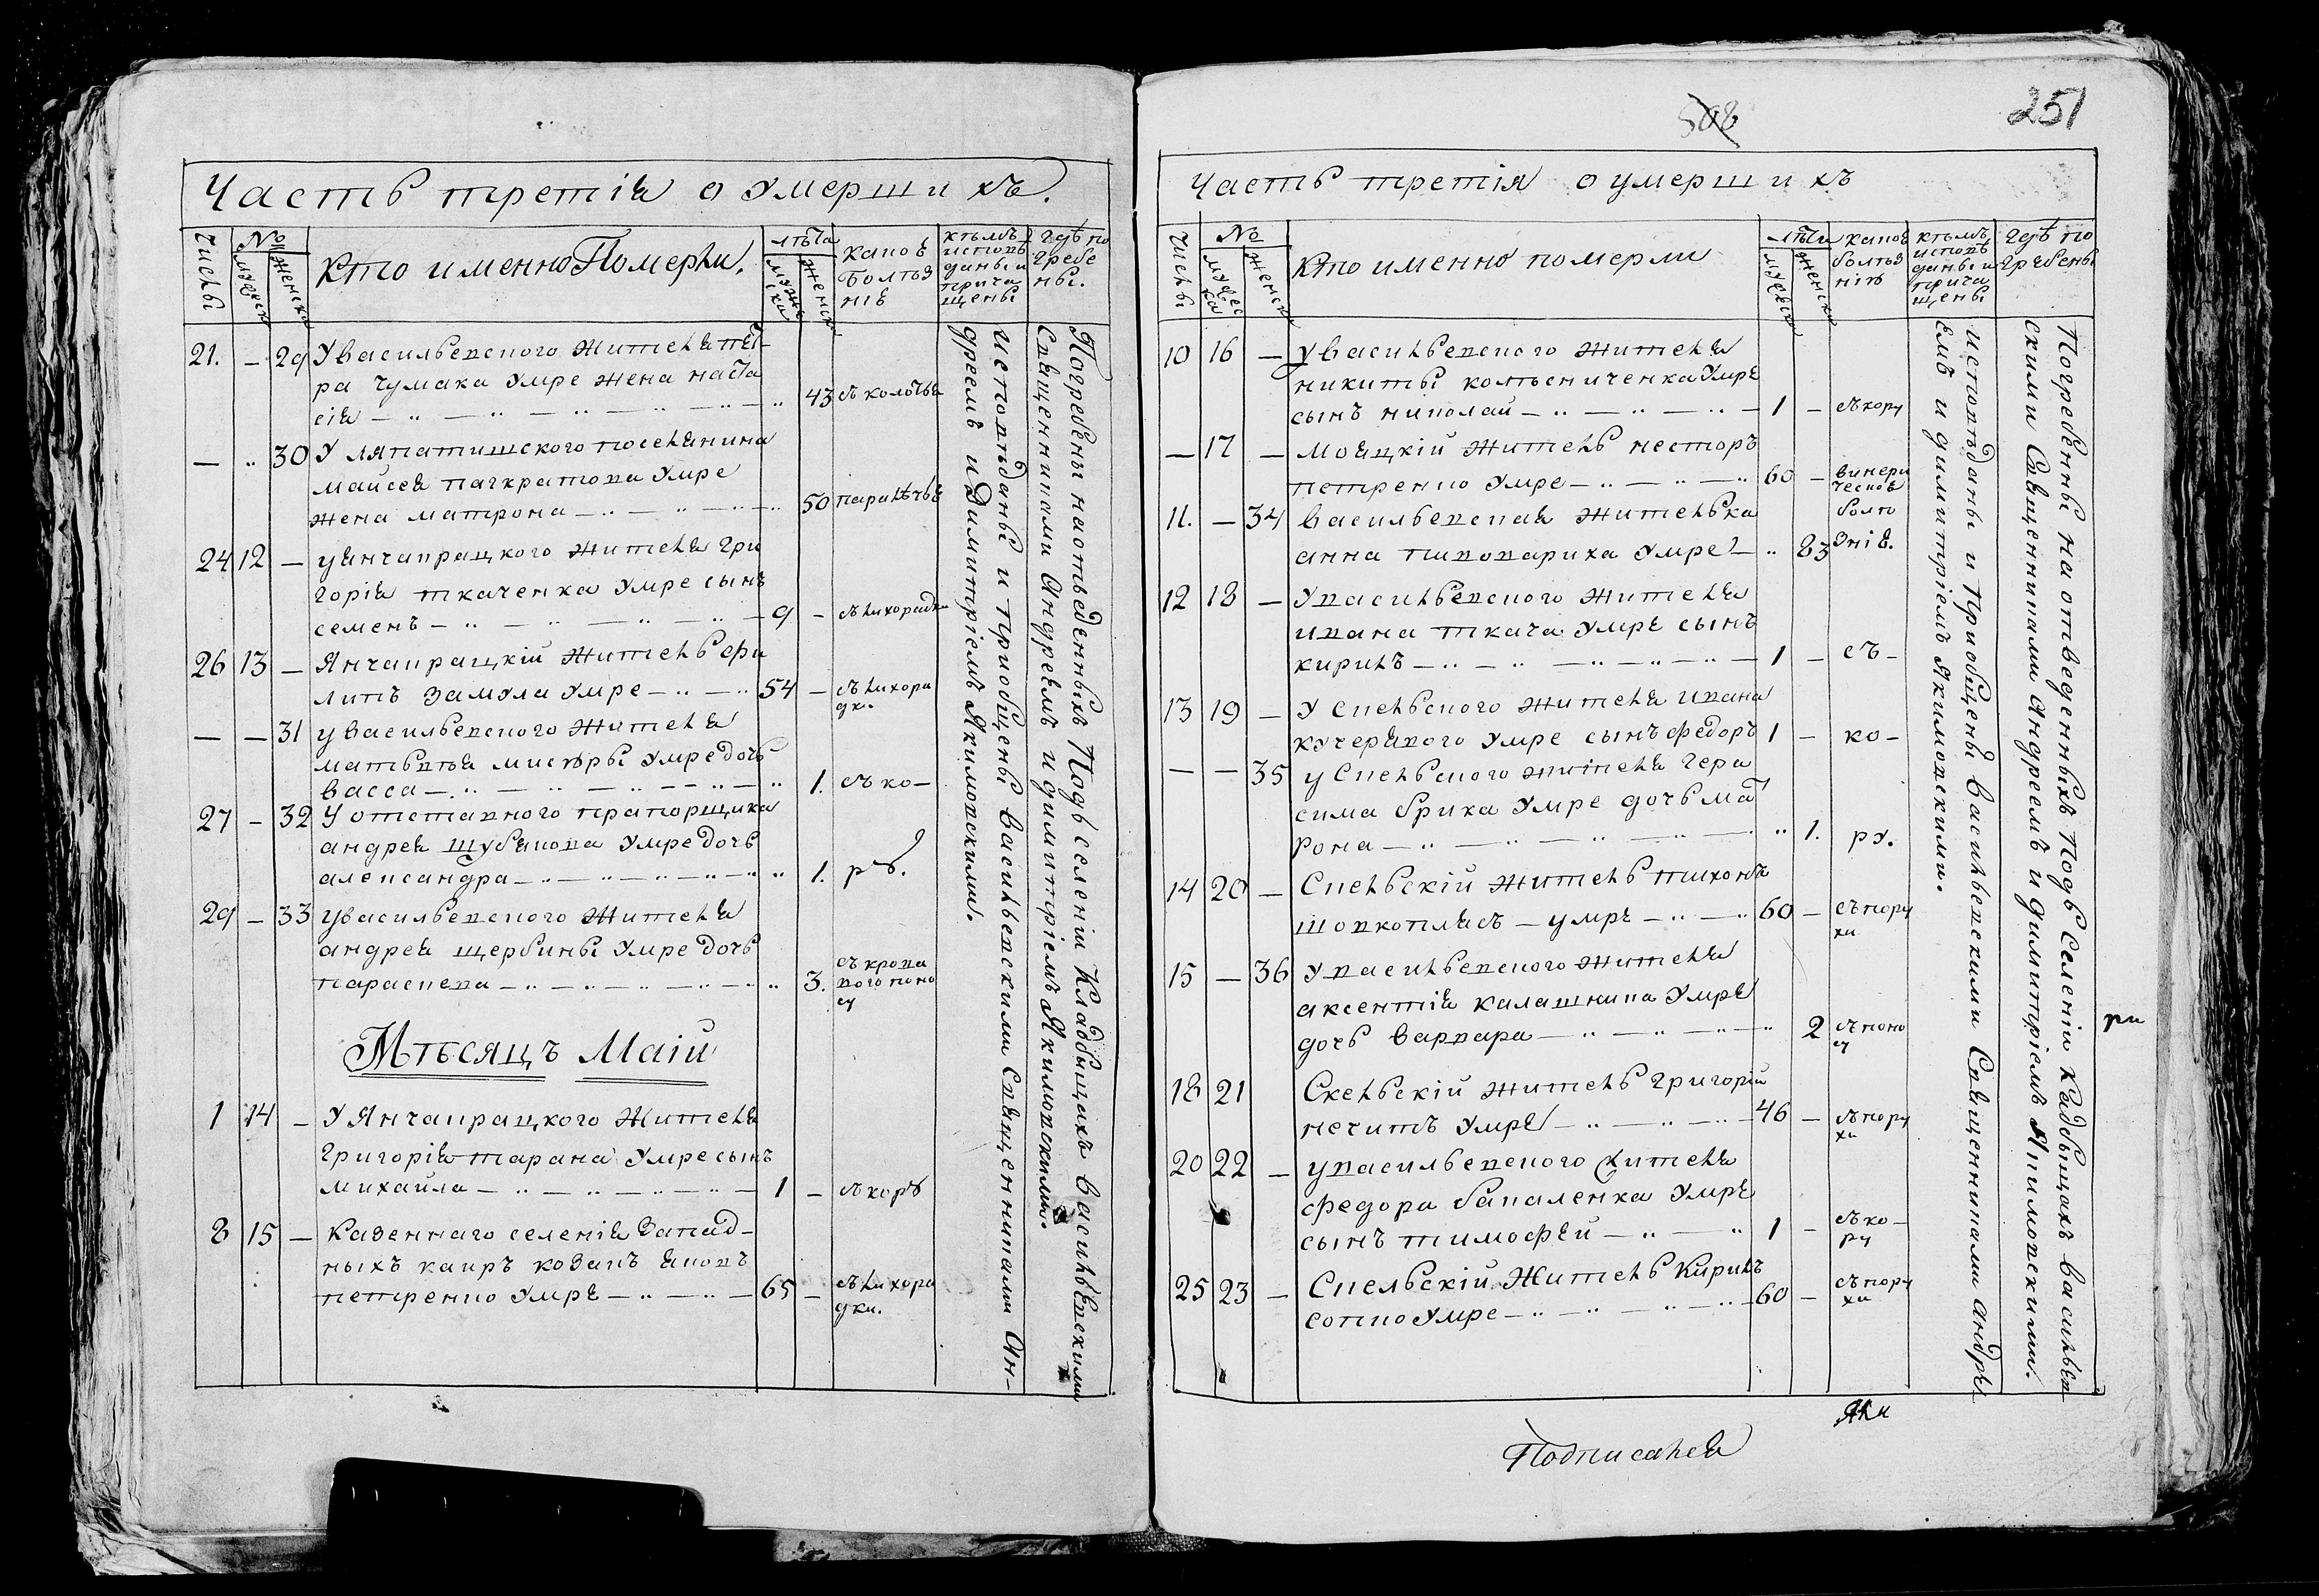 Часть третія о умершихъ.
числы
№
мужеск
женски
кто именно Померли.
лѣта
мужеска
женска
какою
болѣз
нію
кѣмъ
исповѣ
даны и
прича
щены
гдѣ по
гребе
ны.
21. — 29 У васильевского жителя пет
ра чумака умре жена наста
сія — 43 съ колотья
— 30 У ляпатишского поселянина
маисея панкратова умре
жена матрона — 50 параличъ
24 12 — у янчаврацкого жителя гри
горія ткаченка умре сынъ
семенъ — 9 — съ лихорадки
26 13 — Янчаврацкій житель фи
липъ замула умре — 54 — съ лихора
дки.
— — 31 у васильевского жителя
матвѣя мисюры умре дочь
васса — 1. съ ко—
27 — 32 У отставного прапорщика
андрея шубякова умре дочь
александра — 1. рѣ.
29 — 33 у васильевского жителя
андрея щербины умре дочь
параскева — 3. съ крова
вого поно
су
Мѣсяцъ Маій
1 14 — У Янчаврацкого жителя
Григорія тарана умре сынъ
михайла — 1 — съ корѣ
8 15 — Казеннаго селенія Запад—
ныхъ каиръ козакъ яковъ
петренко умре — 65 — съ лихора
дки.
исповѣданы и приобщены васильевскими священниками Ан—
дреемъ и Димитріемъ Якимовскими.
Погребены на отведенныхъ Подъ селеніи кладбищахъ васильевскими
Священниками Андреемъ и димитріемъ Якимовскими.
508
251
Часть третія о умершихъ
числы
№
мужес
ка
женска
Кто именно померли
лѣта
мужеска
женска
какою
болѣз
нію
кѣмъ
исповѣ
даны и
прича
щены
гдѣ по
гребены
10 16 — У васильевского жителя
никиты колѣсниченка умре
сынъ николай — 1 — съ кору
— 17 — Моячкій житель несторъ
петренко умре — 60 — винери
ческою
болѣ
знію.
11. — 34 васильевская жителька
анна пивовариха умре — 83
12 18 — У васильевского жителя
ивана ткача умре сынъ
кирилъ — 1 — съ—
13 19 — У скельского жителя ивана
кучерявого умре сынъ федоръ 1 — ко—
— — 35 у скельского жителя гера
сима брика умре дочь мат
рона — 1. ру.
14 20 — Скельскій житель тихонъ
шовкоплясъ — умре — 60 — съ пору
хи
15 — 36 У васильевского жителя
аксентія калашника умре
дочь варвара — 2 съ поно
су
18 21 Скельскій житель григорій
нечитъ умре — 46 — съ пору
хи
20 22 — у васильевского жителя
федора бакаленка умре
сынъ тимофѣй — 1 — съ ко—
ру
25 23 — Скельскій житель Кирилъ
сопко умре — 60 — съ пору
хи
исповѣданы и приобщены васильевскими Священниками Андре
емъ и димитріемъ Якимовскими.
Погребенны на отведенныхъ Подъ Селеніи кладбищахъ васильев
скими Священниками Андреемъ и димитріемъ Якимовскими.
ри
Яки
Подписался